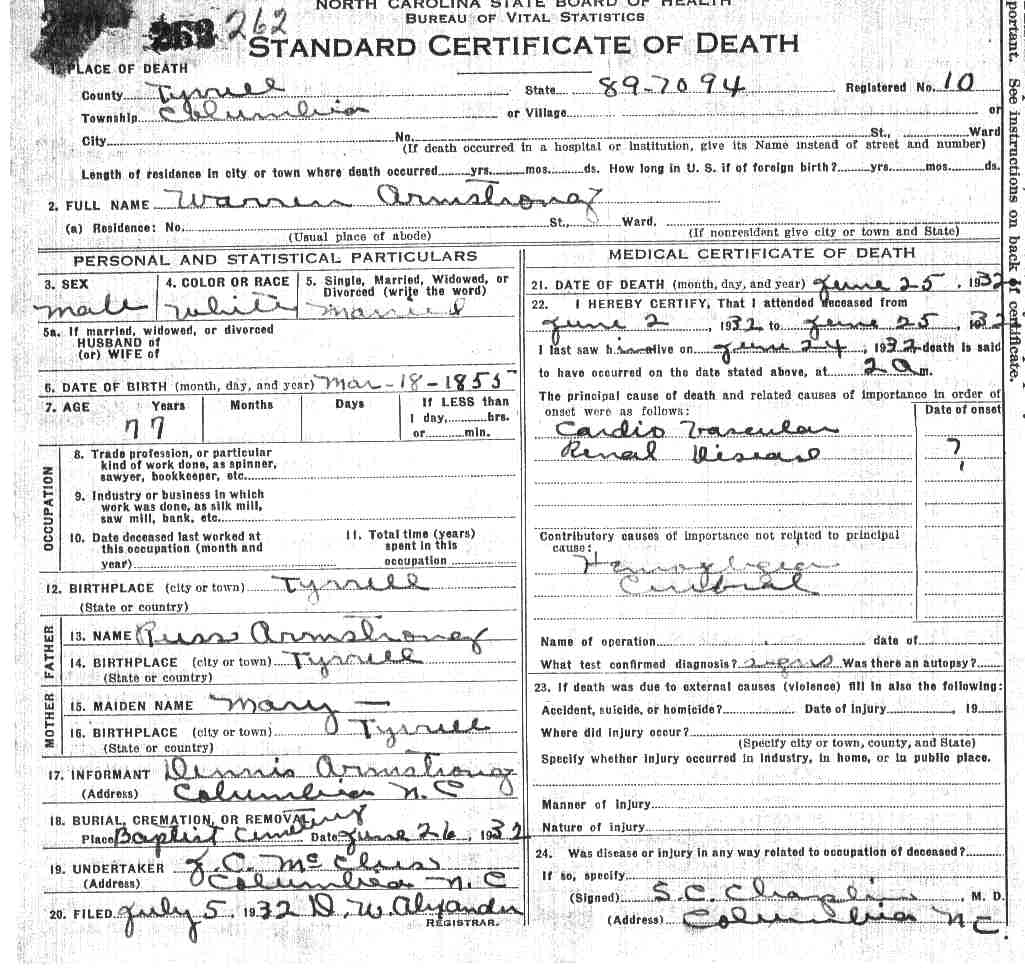 NORTH CAROLINA STATE BOARD OF HEALTH
BUREAU OF VITAL STATISTICS
262
STANDARD CERTIFICATE OF DEATH
1. PLACE OF DEATH
County Tyrrell State 89-7094 Registered No. 10
Township Columbia or Village or
City No. St., Ward
(If death occurred in a hospital or institution, give its Name instead of street and number)
Length of residence in city or town where death occurred yrs. mos. ds. How long in U. S. if of foreign birth? yrs. mos. ds.
2. FULL NAME Warren Armstrong
(a) Residence: No. St., Ward.
(Usual place of abode) (If nonresident give city or town and State)
PERSONAL AND STATISTICAL PARTICULARS
3. SEX 4. COLOR OR RACE 5. Single, Married, Widowed, or Divorced (write the word)
male White Married
5a. If married, widowed, or divorced
HUSBAND of
(or) WIFE of
6. DATE OF BIRTH (month, day, and year) Mar-18-1855
7. AGE Years Months Days If LESS than
1 day, hrs.
77
or min.
OCCUPATION
8. Trade profession, or particular
kind of work done, as spinner,
sawyer, bookkeeper, etc.
9. Industry or business in which
work was done, as silk mill,
saw mill, bank, etc.
10. Date deceased last worked at
this occupation (month and
year)
11. Total time (years)
spent in this
occupation
12. BIRTHPLACE (city or town) Tyrrell
(State or country)
FATHER
13. NAME Russ Armstrong
14. BIRTHPLACE (city or town) Tyrrell
(State or country)
MOTHER
15. MAIDEN NAME Mary —
16. BIRTHPLACE (city or town) Tyrrell
(State or country)
17. INFORMANT Dennis Armstrong
(Address) Columbia N.C
18. BURIAL, CREMATION, OR REMOVAL
Place Baptist Cemetery Date June 26, 1932
19. UNDERTAKER J.C. McClees
(Address) Columbia N.C
20. FILED July 5, 1932 D. W. Alexander
REGISTRAR.
MEDICAL CERTIFICATE OF DEATH
21. DATE OF DEATH (month, day, and year) June 25, 1932
22. I HEREBY CERTIFY, That I attended deceased from
June 2, 1932 to June 25, 1932
I last saw him alive on June 24, 1932 death is said
to have occurred on the date stated above, at 2 am.
The principal cause of death and related causes of importance in order of
onset were as follows: Date of onset
Cardio Vascular
Renal Disease ?
Contributory causes of importance not related to principal
cause:
Cerebral
Name of operation date of
What test confirmed diagnosis? Was there an autopsy?
23. If death was due to external causes (violence) fill in also the following:
Accident, suicide, or homicide? Date of injury , 19
Where did injury occur?
(Specify city or town, county, and State)
Specify whether injury occurred in industry, in home, or in public place.
Manner of Injury
Nature of injury
24. Was disease or injury in any way related to occupation of deceased?
If so, specify
(Signed) S.C. Chaplin, M. D.
(Address) Columbia NC.
portant. See instructions on back of certificate.